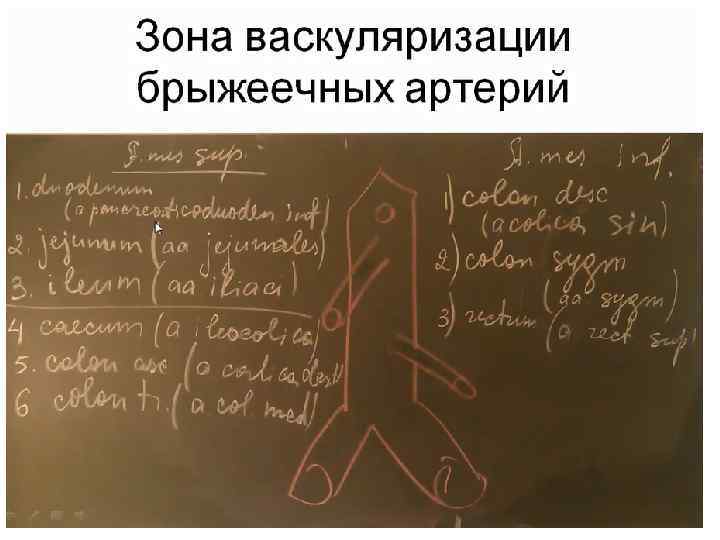 Зона васкуляризации
брыжеечных артерий
A. mes sup.
1. duodenum
(a pancreaticoduoden inf)
2. jejunum (aa jejunales)
3. ileum (aa iliaci)
4 caecum (a ileocolica)
5. colon asc (a colica dext)
6 colon tr. (a col. med)
A. mes inf.
1) colon desc
(a colica sin)
2) colon sygm
(aa sygm)
3) rectum (a rect sup)